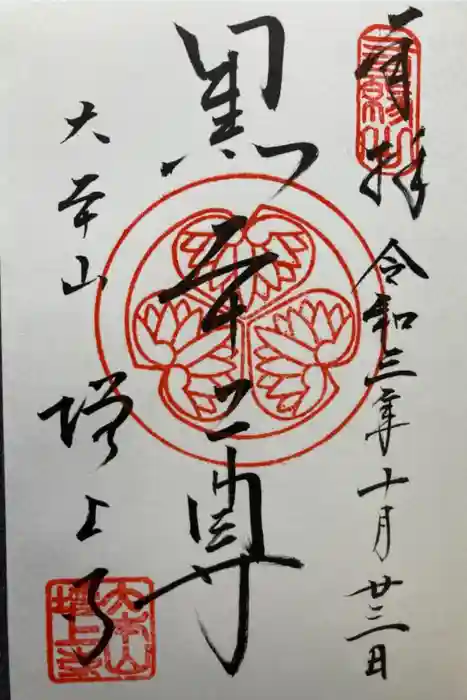 奉拝
令和三年十月廿三日
三縁山
黒本尊
大本山
増上寺
大本山
増上寺